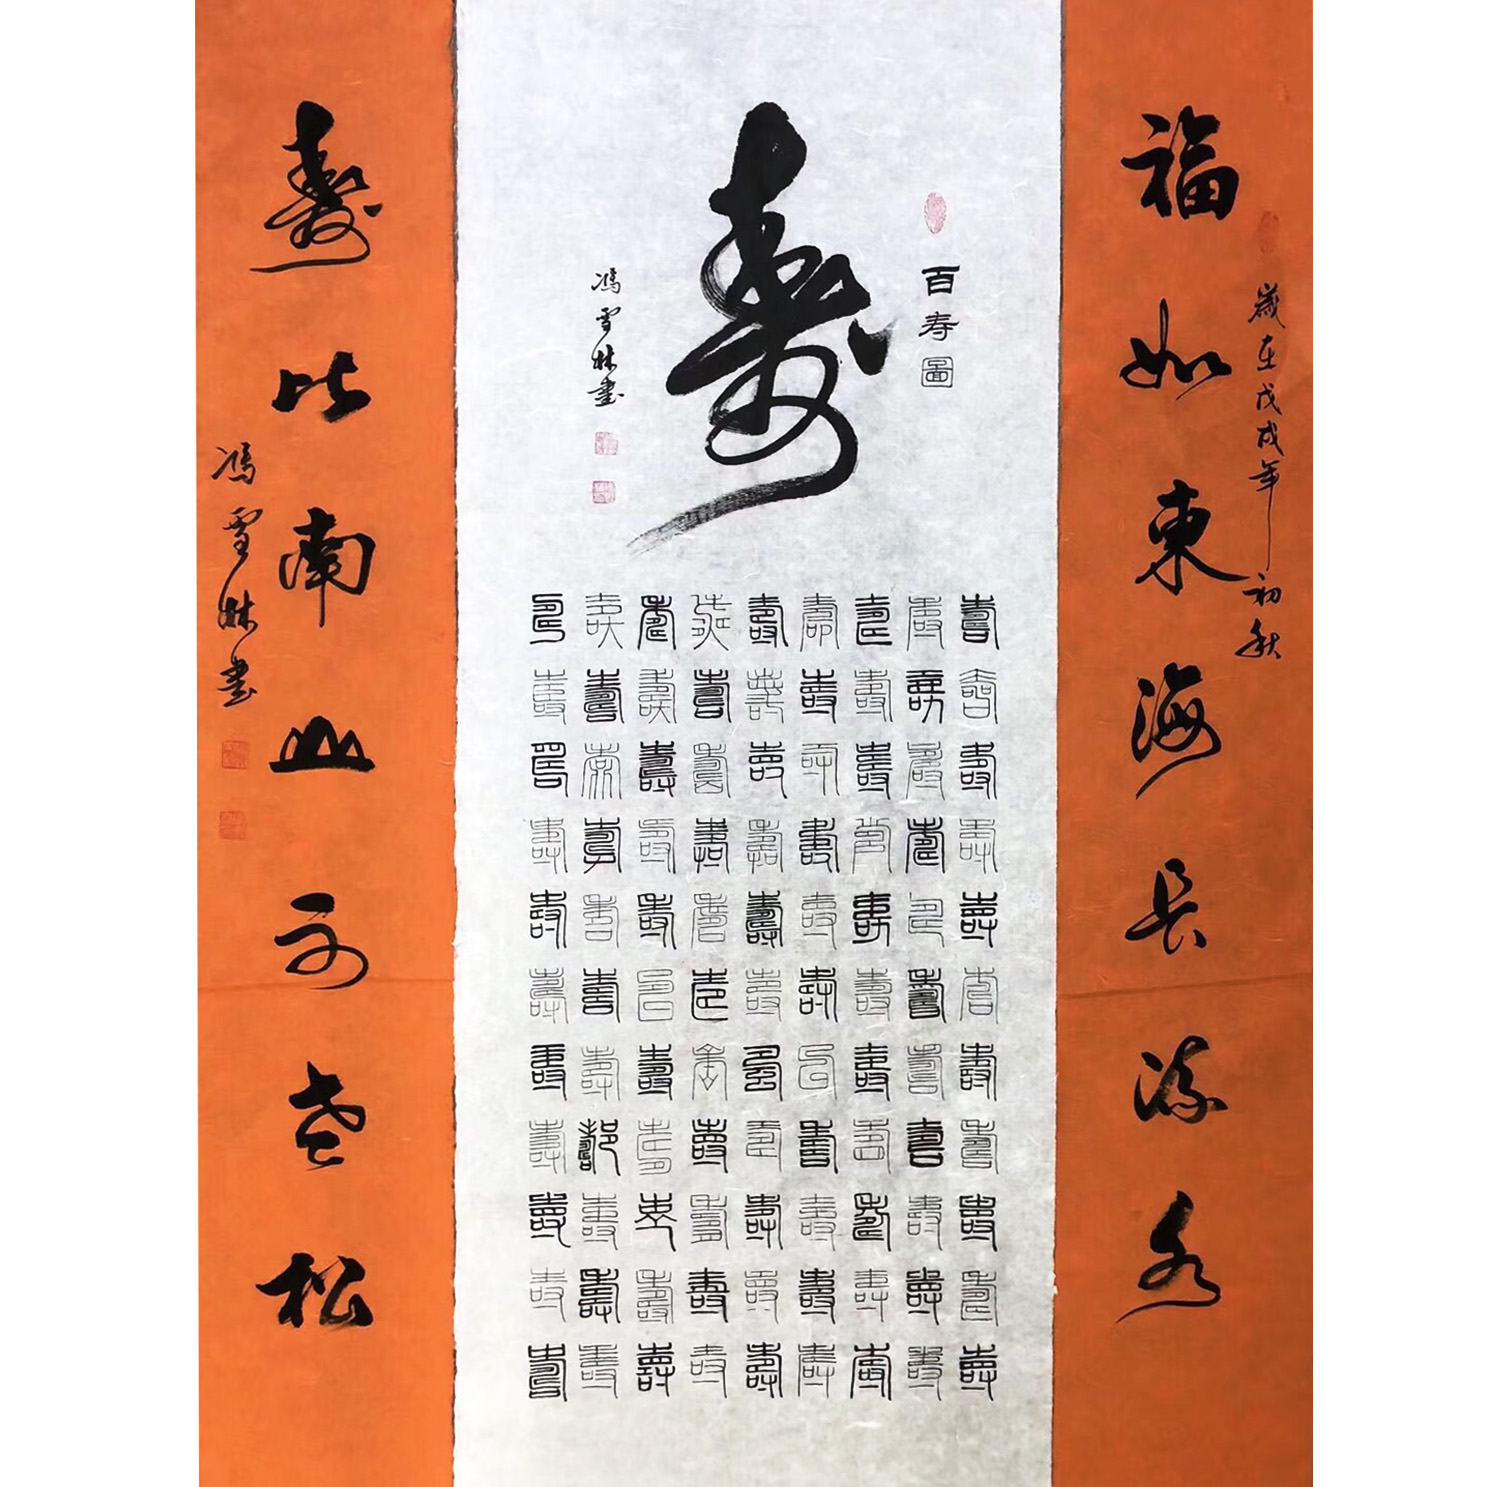 福如東海長流水
歲在戊戌年初秋
百寿圖
壽
馮雪林書
壽壽壽壽壽壽壽壽壽
壽壽壽壽壽壽壽壽壽
壽壽壽壽壽壽壽壽壽
壽壽壽壽壽壽壽壽壽
壽壽壽壽壽壽壽壽壽
壽壽壽壽壽壽壽壽壽
壽壽壽壽壽壽壽壽壽
壽壽壽壽壽壽壽壽壽
壽壽壽壽壽壽壽壽壽
壽壽壽壽壽壽壽壽壽
壽壽壽壽壽壽壽壽壽
壽比南山不老松
馮雪林書